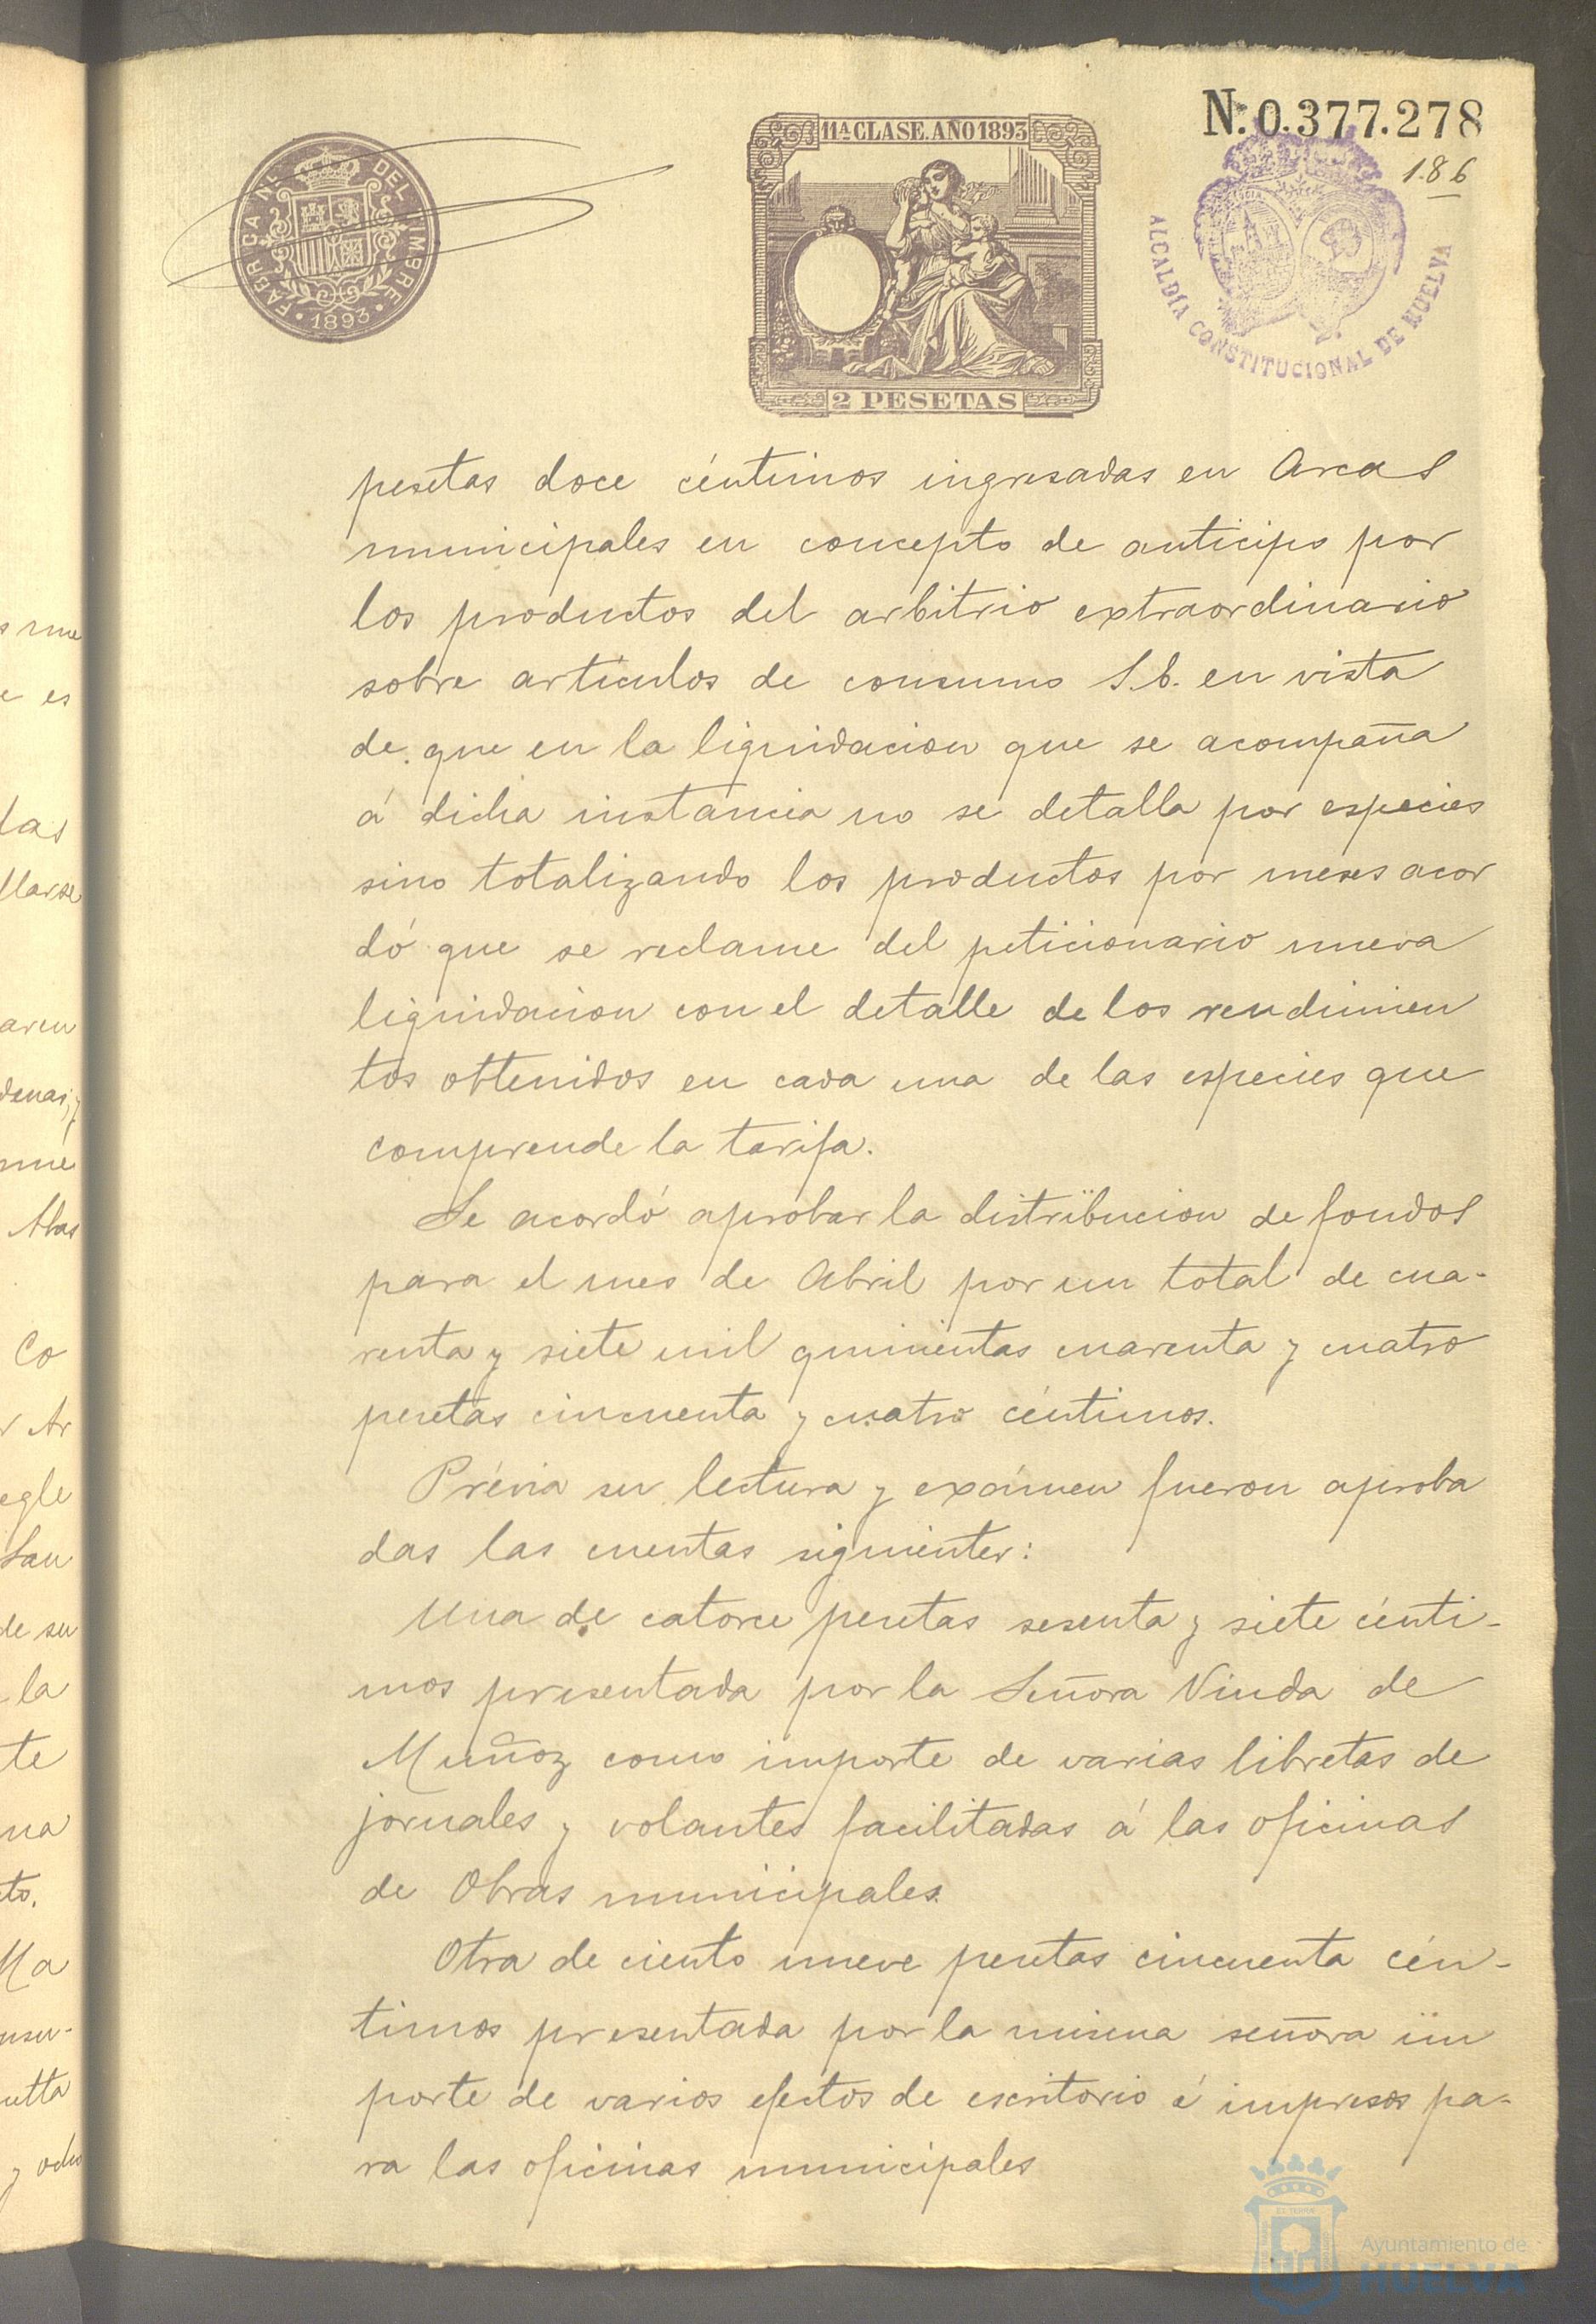 N.º 0.377.278
186
FABRICA NL DEL TIMBRE
· 1893 ·
11ª CLASE. AÑO 1893
2 PESETAS
ALCALDÍA CONSTITUCIONAL DE HUELVA
pesetas doce céntimos ingresadas en Arcas
municipales en concepto de anticipo por
los productos del arbitrio extraordinario
sobre artículos de consumo S.E. en vista
de que en la liquidacion que se acompaña
á dicha instancia no se detalla por especies
sino totalizando los productos por meses acor
dó que se reclame del peticionario nueva
liquidacion con el detalle de los rendimien
tos obtenidos en cada una de las especies que
comprende la tarifa.
Se acordó aprobar la distribucion de fondos
para el mes de Abril por un total de cua-
renta y siete mil quinientas cuarenta y cuatro
pesetas cincuenta y cuatro céntimos.
Prévia su lectura y exámen fueron aproba
das las cuentas siguientes:
Una de catorce pesetas sesenta y siete cénti-
mos presentada por la Señora Viuda de
Muñoz como importe de varias libretas de
jornales y volantes facilitadas á las oficinas
de Obras municipales.
Otra de ciento nueve pesetas cincuenta cén-
timos presentada por la misma señora im
porte de varios efectos de escritorio é impresos pa-
ra las oficinas municipales
s me
e es
las
llarse
aren
denas, y
me
Co
r Ar
egle
San
de su
la
te
na
to.
Ma
y ocho
Ayuntamiento de
HUELVA